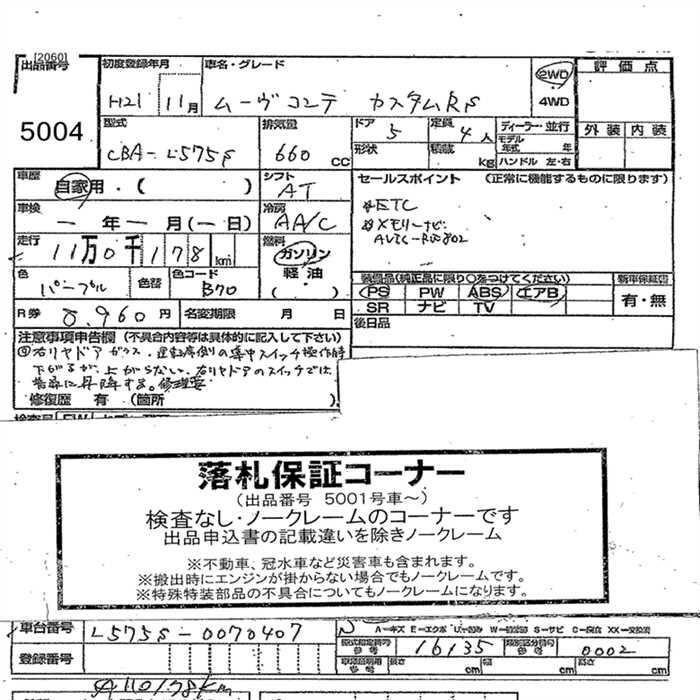 [2060]
出品番号 初度登録年月 車名・グレード 2WD 評価点
5004 H21 11月 ムーヴコンテ カスタムRS 4WD
型式 排気量 ドア 定員 ディーラー・並行 外装 内装
CBA-L575S 660 CC 5 4人 モデル年式 年
形状 積載 kg ハンドル 左・右
車歴 自家用・( ) シフト AT セールスポイント (正常に機能するものに限ります)
車検 ー年ー月(ー日) 冷房 AA/C ETC
メモリーナビ
走行 11万0千178km 燃料 ガソリン 軽油 ( )
色 パープル 色替 色コード B70 装備品(純正品に限り○をつけてください) 新車保証書
PS PW ABS エアB 有・無
SR ナビ TV
R券 8,960円 名変期限 月 日 後日品
注意事項申告欄 (不具合内容等は具体的に記入して下さい)
右リヤドアガラス、運転席側の集中スイッチ操作時
下がるが、上がらない。右リヤドアのスイッチでは
昇降する。修理要
修復歴 有 (箇所 )
落札保証コーナー
(出品番号 5001号車～)
検査なし・ノークレームのコーナーです
出品申込書の記載違いを除きノークレーム
※不動車、冠水車など災害車も含まれます。
※搬出時にエンジンが掛からない場合でもノークレームです。
※特殊特装部品の不具合についてもノークレームになります。
車台番号 L575S-0070407
型式指定番号 参考 16135 類別区分番号 参考 0002
登録番号 長さ cm 幅 cm 高さ cm
110178km